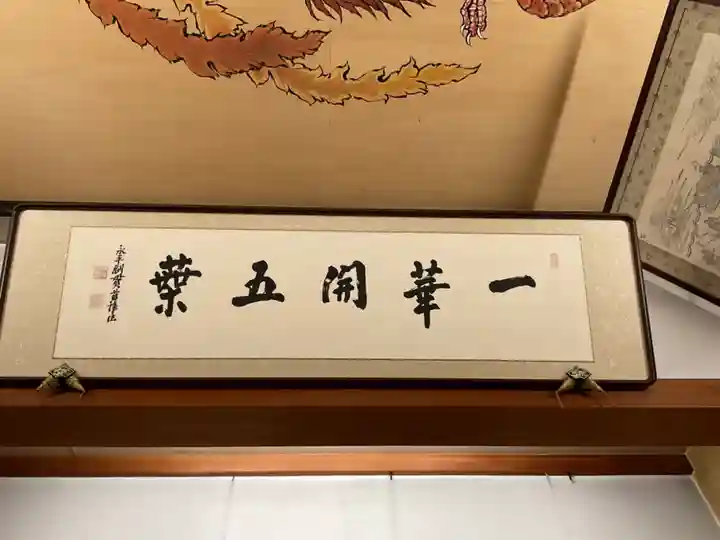 一華開五葉
永平副貫首